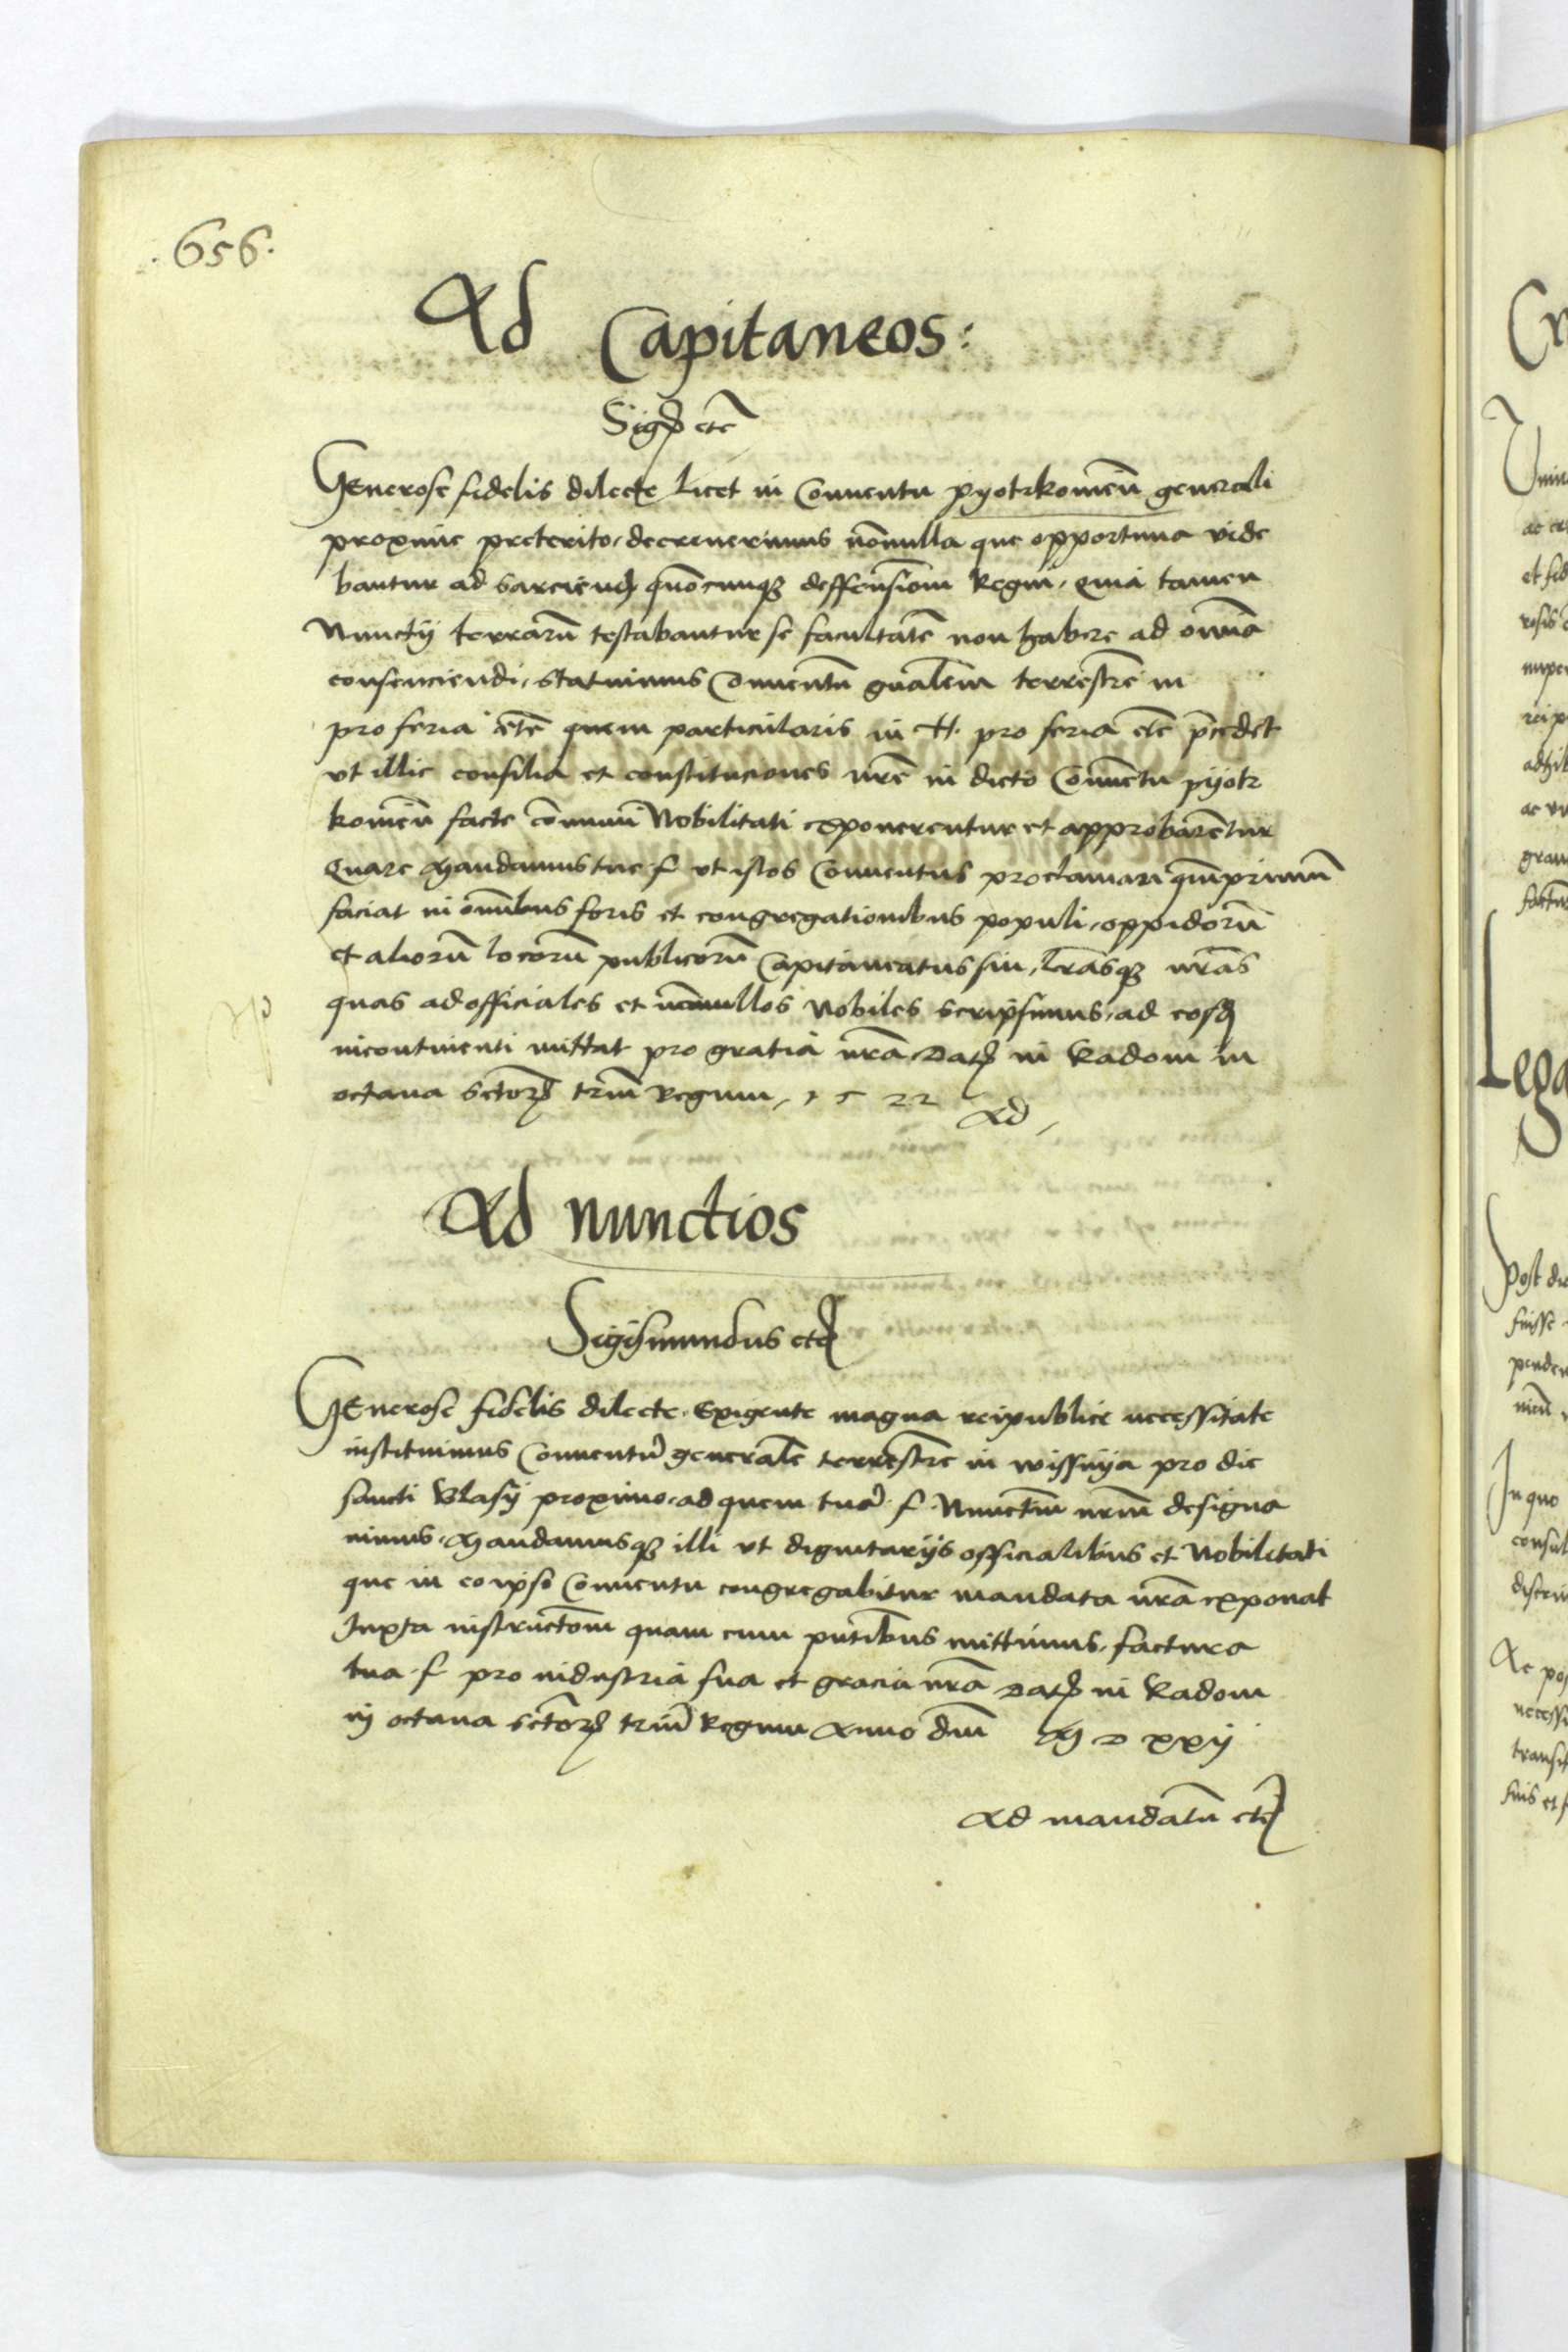 .656.
Ad Capitaneos:
Sigd etc̄
Generose fidelis dilecte Licet in Conuentu pyotrkowien̄ generali
proxime preterito, decreuerimus nōnulla que opportuna vide
bantur ad sarciend quōcunqꝫ deffensiōem Regni, Quia tamen
Nunctij terrarū testabantur se facultatē non habere ad omīa
consenciendi, statuimus Conuentū gn̄alem terrestrē in
pro feria etc̄ quem particularis in H. pro feria etc̄ p̄cedet
vt illic consilia et constituciones nr̄e in dicto Conuētu pyotr
kowien̄ facte cōmuni Nobilitati exponerentur et approbarentur
Quare Mandamus tue f. vt istos Conuentus proclamari q̄mprimum
faciat in omībus foris et congregationibus populi, oppidorū
et aliorū locorū publicorū Capitaneatus sui, Lr̄asqꝫ nr̄as
quas ad officiales et nōnullos Nobiles scripsimus, ad eosd
incontinenti mittat pro gratia nr̄a Dat in Radom in
octaua sctorꝫ triū Regum, 1522 Ad,
Ad nunctios
Sigismundus etc
Generose fidelis dilecte. Exigente magna reipublice necessitate
instituimus Conuentū generalē terrestrē in wissnija pro die
sancti Blasij proximo, ad quem tuā. f. Nunctiū nrm̄ designa
uimus. Mandamusqꝫ illi vt dignitarijs officialibus et Nobilitati
que in eo ipso Conuentu congregabitur mandata nr̄a exponat
Juxta instructōem quam cum pn̄tibus mittimus, factura
tua. f. pro industria sua et gracia nr̄a Dat in Radom
in octaua sctorꝫ triū Regum Anno dn̄i M D xxij
Ad mandatū etc